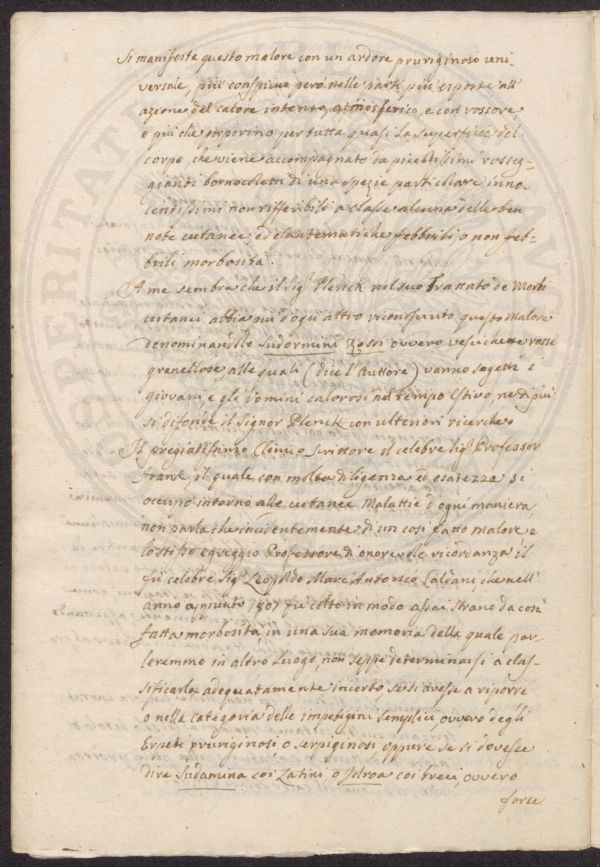 Si manifesta questo malore con un ardore pruriginoso uni-
versale, più conspicuo però nelle parti più esposte all'
azione del calore intenso atmosferico, e con rossore
e più che porporino per tutta quasi la superficie del
corpo, che viene accompagnato da picciolissimi rosseg-
gianti bornoccoletti di una spezie particolare inno-
centissimi non rifferibili a classe alcuna delle ben
note cutanee ed esantematiche febbrili, o non feb-
brili morbosità.
A me sembra che il Sigr Plenck nel suo Trattato de Morbi
cutanei abbia più d'ogni altro riconosciuto questo Malore
denominandolo Sudormini Rossi ovvero vescichette rosse
granellose alle quali (dice l'Auttore) vanno sogetti i
giovani, e gli uomini calorosi nel tempo Estivo, ne di più
si difonde il Signor Plenck con ulteriori ricerche.
Il pregiatissimo Clinico Scrittore il celebre Sigr Professor
Frank, il quale con molta diligenza ed esatezza si
occupò intorno alle cutanee Malattie d'ogni maniera
non parla che incidentemente di un così fatto malore e
lo stesso egreggio Professore di onorevole ricordanza il
fù celebre Sigr Leopoldo Marc'Antonio Caldani, che nell'
anno appunto 1807 fù colto in modo assai strano da così
fatta morbosità in una sua memoria della quale par-
leremmo in altro luogo, non seppe determinarsi a clas-
sificarla adequatamente incerto se si avesse a riporre
o nelle categoria delle impetigini semplici, ovvero degli
Erpeti pruriginosi, o serpiginosi, oppure se si dovesse
dire Sudamina coi Latini, o Idroa coi Greci, ovvero
forse